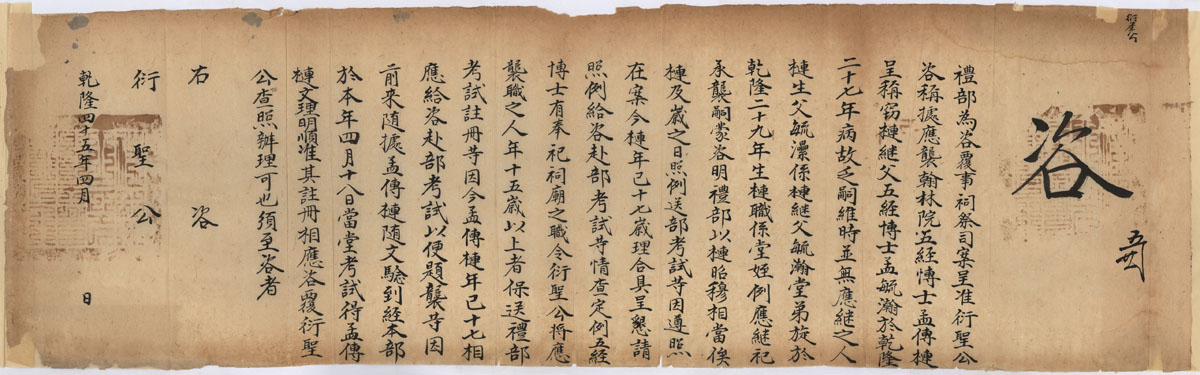 衍聖公
咨
禮部為咨覆事祠祭司案呈准衍聖公
咨稱據應襲翰林院五經博士孟傳槤
呈稱竊槤継父五經博士孟毓瀚於乾隆
二十七年病故乏嗣維時並無應継之人
槤生父毓瀠係槤継父毓瀚堂弟旋於
乾隆二十九年生槤職係堂姪例應継祀
承襲嗣蒙咨明禮部以槤昭穆相當俟
槤及歲之日照例送部考試等因遵照
在案今槤年已十七歲理合具呈懇請
照例給咨赴部考試等情查定例五經
博士有奉祀祠廟之職令衍聖公將應
襲職之人年十五歲以上者保送禮部
考試註冊等因今孟傳槤年已十七相
應給咨赴部考試以便題襲等因
前来随據孟傳槤随文驗到經本部
於本年四月十八日當堂考試得孟傳
槤文理明順准其註冊相應咨覆衍聖
公查照辦理可也須至咨者
右咨
衍聖公
乾隆四十五年四月日